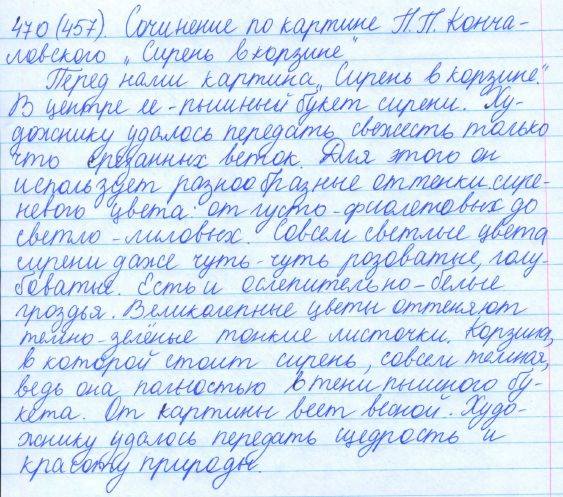 470(457). Сочинение по картине П.П. Конча-
ловского „Сирень в корзине"
Перед нами картина „Сирень в корзине."
В центре ее - пышный букет сирени. Ху-
дожнику удалось передать свежесть только
что срезанных веток. Для этого он
использует разнообразные оттенки сире-
невого цвета: от густо-фиолетовых до
светло-лиловых. Совсем светлые цвета
сирени даже чуть-чуть розоватые, голу-
боватые. Есть и ослепительно-белые
гроздья. Великолепные цветы оттеняют
темно-зелёные тонкие листочки. Корзина,
в которой стоит сирень, совсем темная,
ведь она полностью в тени пышного бу-
кета. От картины веет весной. Худо-
жнику удалось передать щедрость и
красоту природы.